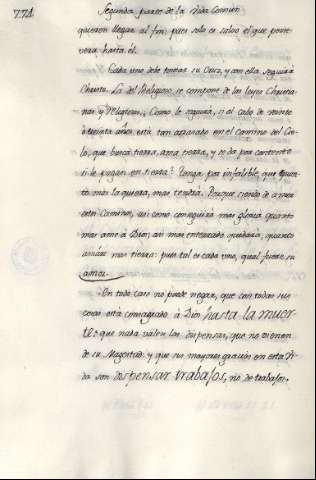 774
Segunda parte de la Vida Comun
quieren llegar al fin: pues solo es salvo el que perse
vera hasta él.
Cada uno debe tomar su Cruz, y con ella seguir à
Christo. La del Religioso se compone de las leyes Christia
nas y Religiosas. Como le seguirà, si al cabo de veinte
ò treinta años està tan atrasado en el Camino del Cie
lo, que busca tierra, ama tierra, y se da por contento
si le pagan en tierra? Tenga por infalible, que quan
to mas la quiera, mas tendrà. Porque siendo de amor
este Camino, asi como conseguirà mas gloria quanto
mas ame à Dios; asi mas enterrado quedarà, quanto
amàre mas tierra: pues tal es cada uno, qual fuere su
amor.
En todo caso no puede negar, que con todas sus
cosas està consagrado à Dios hasta la muer
te: que nada valen las dispensas, que no vienen
de su Magestad: y que sus mayores gracias en esta Vi
da son dispensar trabajos, no de trabajos.